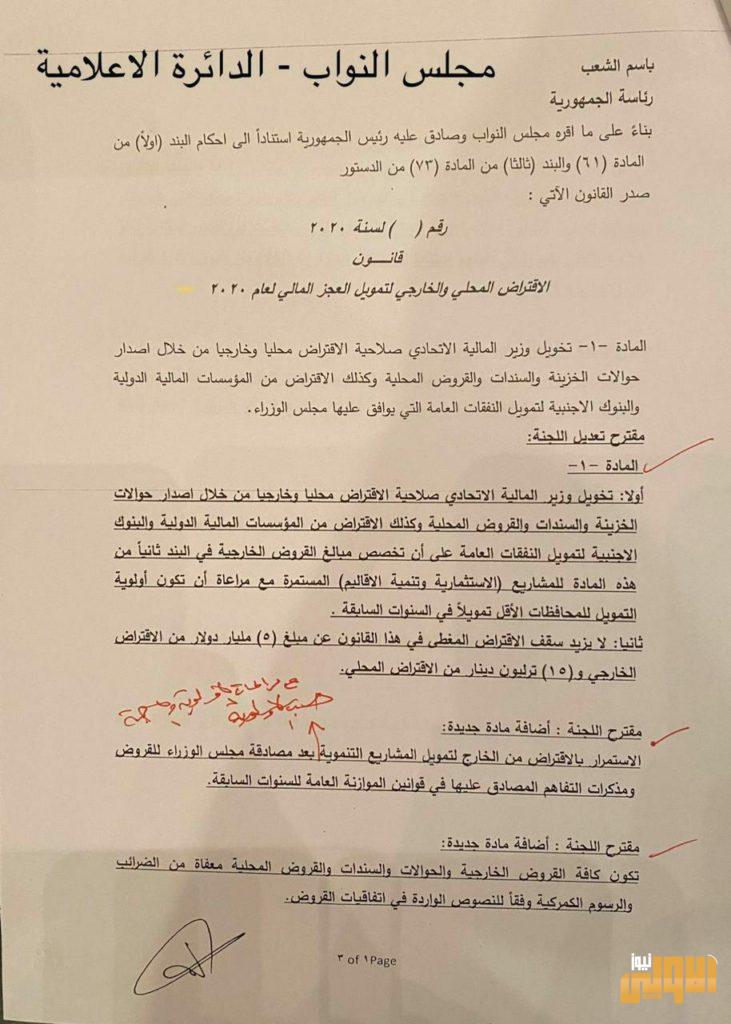 مجلس النواب - الدائرة الاعلامية
باسم الشعب
رئاسة الجمهورية
بناءً على ما اقره مجلس النواب وصادق عليه رئيس الجمهورية استناداً الى احكام البند (اولاً) من
المادة (٦١) والبند (ثالثا) من المادة (٧٣) من الدستور
صدر القانون الآتي :
رقم (    ) لسنة ٢٠٢٠
قانـــون
الاقتراض المحلي والخارجي لتمويل العجز المالي لعام ٢٠٢٠
المادة -١- تخويل وزير المالية الاتحادي صلاحية الاقتراض محليا وخارجيا من خلال اصدار
حوالات الخزينة والسندات والقروض المحلية وكذلك الاقتراض من المؤسسات المالية الدولية
والبنوك الاجنبية لتمويل النفقات العامة التي يوافق عليها مجلس الوزراء.
مقترح تعديل اللجنة:
المادة -١-
أولا: تخويل وزير المالية الاتحادي صلاحية الاقتراض محليا وخارجيا من خلال اصدار حوالات
الخزينة والسندات والقروض المحلية وكذلك الاقتراض من المؤسسات المالية الدولية والبنوك
الاجنبية لتمويل النفقات العامة على أن تخصص مبالغ القروض الخارجية في البند ثانياً من
هذه المادة للمشاريع (الاستثمارية وتنمية الاقاليم) المستمرة مع مراعاة أن تكون أولوية
التمويل للمحافظات الأقل تمويلاً في السنوات السابقة .
ثانيا: لا يزيد سقف الاقتراض المغطى في هذا القانون عن مبلغ (٥) مليار دولار من الاقتراض
الخارجي و(١٥) ترليون دينار من الاقتراض المحلي.
مقترح اللجنة : أضافة مادة جديدة:
الاستمرار بالاقتراض من الخارج لتمويل المشاريع التنموية بعد مصادقة مجلس الوزراء للقروض
ومذكرات التفاهم المصادق عليها في قوانين الموازنة العامة للسنوات السابقة.
مقترح اللجنة : أضافة مادة جديدة:
تكون كافة القروض الخارجية والحوالات والسندات والقروض المحلية معفاة من الضرائب
والرسوم الكمركية وفقاً للنصوص الواردة في اتفاقيات القروض.
٣ of ١Page
الاولى نيوز